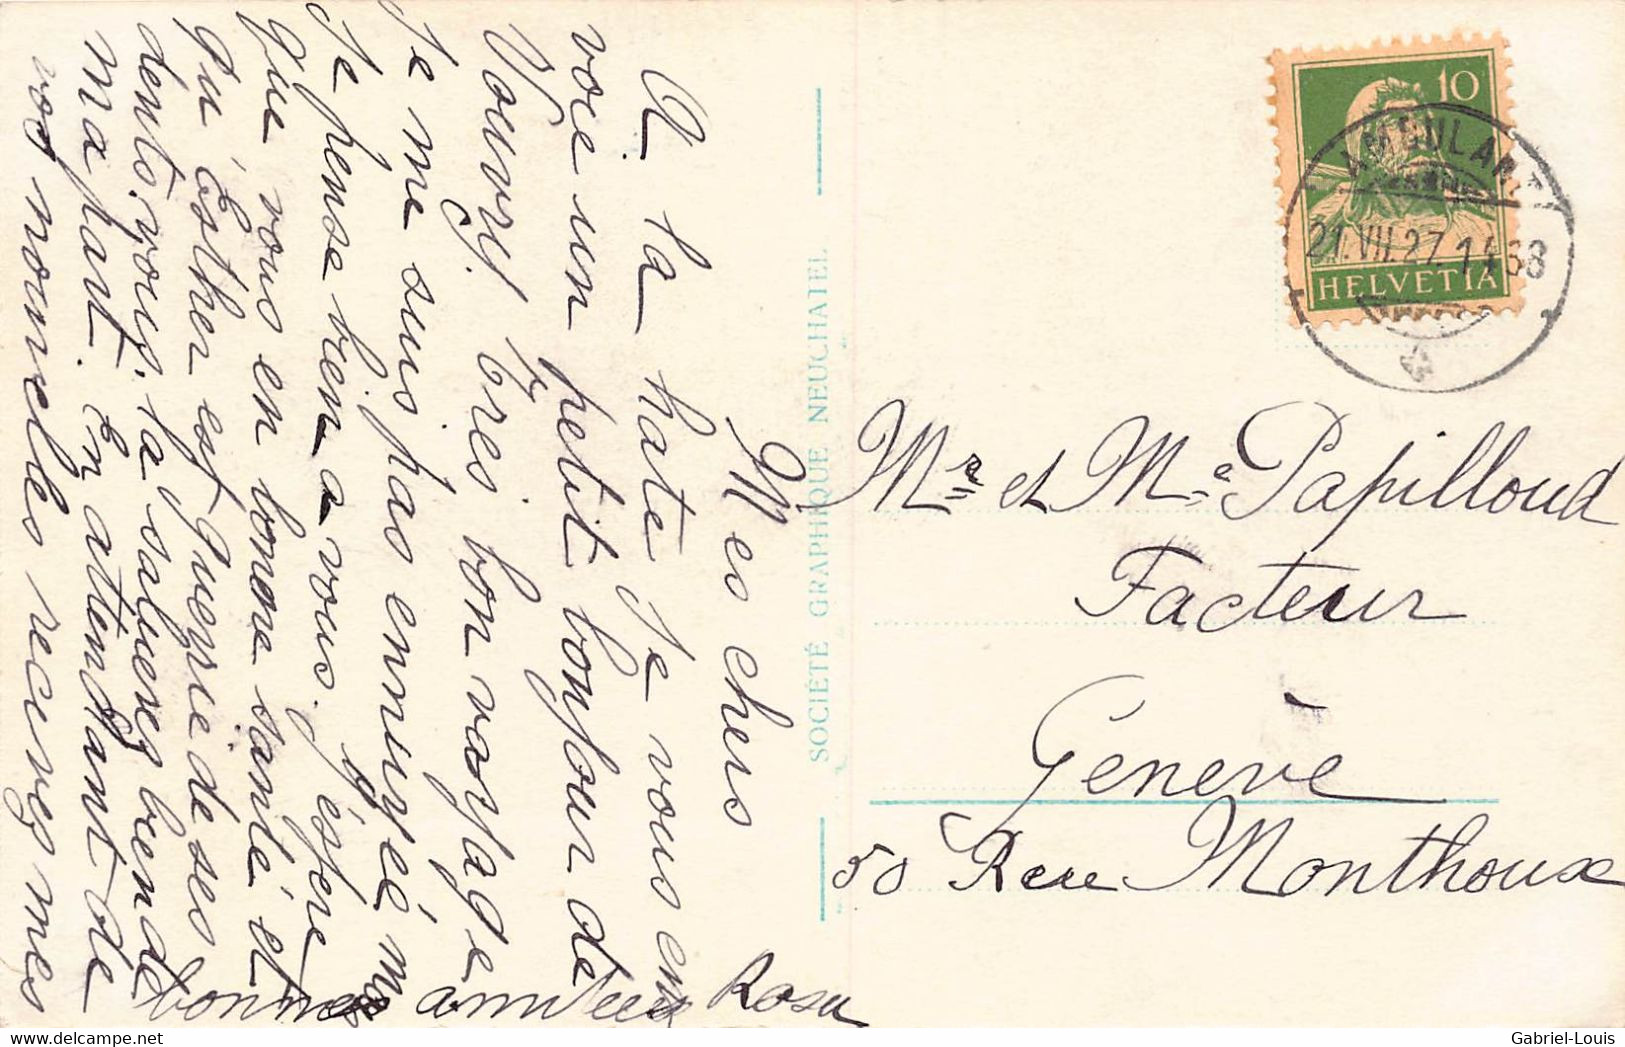 Mes chers
A la hate Je vous en
voie un petit bonjour de
Vouvry. Très bon voyage
Je me suis pas ennuyeé
Je pense bien a vous. éspére
que vous en bonne santé et
qu'Esther est guerrie de ses
dents. vous, la saluerez bien de
ma part. En attendant de
vos nouvelles recevez mes
bonnes amitiees Rosa
SOCIÉTÉ GRAPHIQUE NEUCHATEL
10
HELVETIA
AMBULANT
21.VII.27.1468
Mr et Me Papilloud
Facteur
Genève
50 Rue Monthoux
Gabriel-Louis